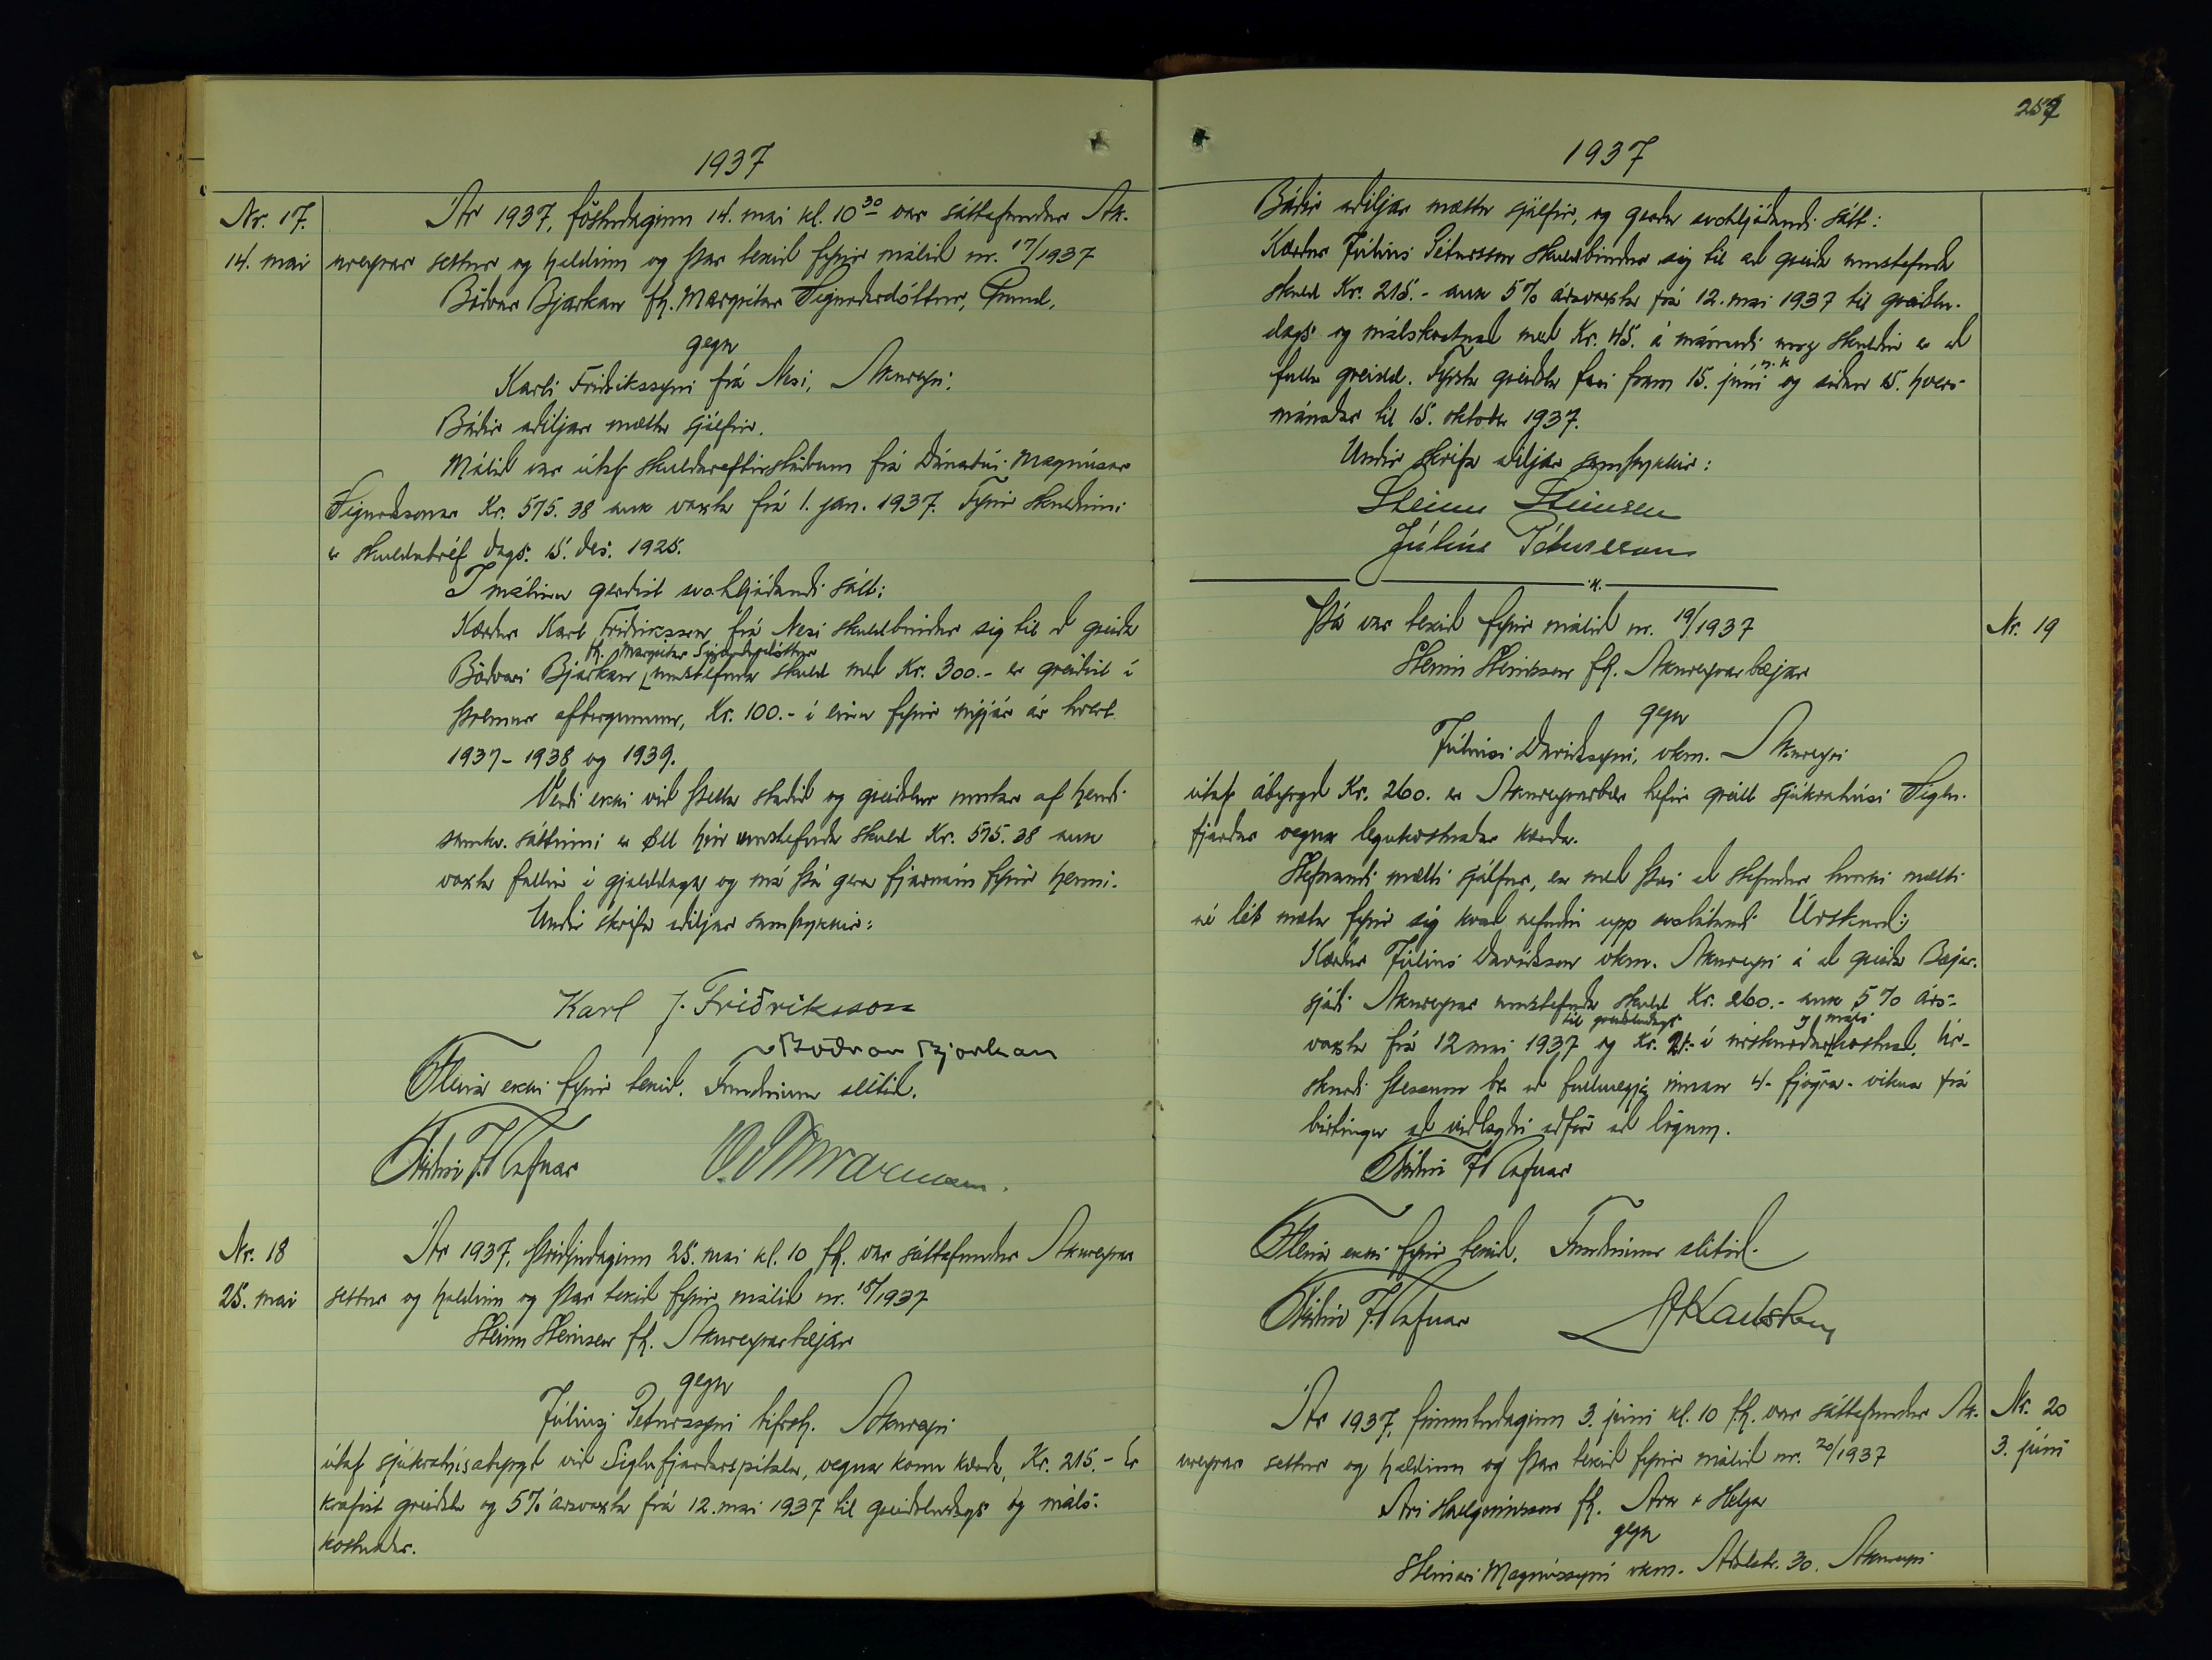 1937
Nr. 17.
14. mai
Ár 1937, föstudaginn 14. mai kl. 10 30 var sáttafundur Ak-
ureyrar settur og haldinn og þar tekið fyrir málið nr. 17/1937
Böðvar Bjarkan fh. Margrétar Sigurðardóttur, Grund,
gegn
Karli Friðrikssyni frá Nesi, Akureyri.
Báðir aðiljar mættu sjálfir.
Málið var útaf skuldareftirstöðvum frá Dánarbúi Magnúsar
Sigurðssonar Kr. 575.38 auk vaxta frá 1. jan. 1937. Fyrir skuldinni
er skuldabréf dags. 15. des. 1925.
Í málinu gerðist svohljóðandi sátt:
Kærður Karl Friðriksson frá Nesi skuldbindur sig til að greiða
fh. Margrétar Sigurðardóttur
Böðvari Bjarkan umstefnda skuld með Kr. 300.- er greiðist í
þremur afborgunum, Kr. 100.- í einu fyrir nýjár ár hvert
1937 - 1938 og 1939.
Verði ekki við þetta staðið og greiðslur inntar af hendi
samkv. sáttinni er öll hin umstefnda skuld Kr. 575.38 auk
vaxta fallin í gjalddaga og má þá gera fjárnám fyrir henni.
Undir skrifa aðiljar samþykkir:
Karl J. Friðriksson
Böðvar Bjarkan
Fleira ekki fyrir tekið. Fundinum slitið.
Friðrik J. Rafnar
Nr. 18
25. mai
Ár 1937, þriðjudaginn 25. mai kl. 10 fh. var sáttafundur Akureyrar
settur og haldinn og þar tekið fyrir málið nr. 18/1937
Steinn Steinsen fh. Akureyrarbæjar
gegn
Júlíusi Péturssyni bifrstj. Akureyri
útaf sjúkrahúsábyrgð við Siglufjarðarspítala, vegna konu kærða, Kr. 215.- Er
krafist greiðslu og 5% ársvaxta frá 12. mai 1937 til greiðsludags og máls-
kostnaðar.
257
1937
Báðir aðiljar mættu sjálfir, og gerðu svohljóðandi sátt:
Kærður Júlíus Pétursson skuldbindur sig til að greiða umstefnda
skuld Kr. 215.- auk 5% ársvaxta frá 12. mai 1937 til greiðslu-
dags og málskostnað með Kr. 45. á mánuði unz skuldin er að
n.k.
fullu greidd. Fyrsta greiðsla fari fram 15. júní og síðan 15. hvers
mánaðar til 15. oktober 1937.
Undir skrifa aðiljar samþykkir:
Steinn Steinsen
Júlíus Pétursson
Nr. 19
Þá var tekið fyrir málið nr. 19/1937
Steinn Steinsen fh. Akureyrarbæjar
gegn
Júlíusi Davíðssyni, vkm. Akureyri
útaf ábyrgð Kr. 260. er Akureyrarbær hefir greitt sjúkrahúsi Siglu-
fjarðar vegna legukostnaðar kærða.
Stefnandi mætti sjálfur, en með því að stefndur hvorki mætti
né lét mæta fyrir sig kvað nefndin upp svolátandi Úrskurð:
Kærður Júlíus Davíðsson vkm. Akureyri á að greiða Bæjar-
sjóði Akureyrar umstefnda skuld Kr. 260.- auk 5% árs-
til greiðsludags og máls
vaxta frá 12 mai 1937 og Kr. 21.- í úrskurðarkostnað. Úr-
skurði þessum ber að fullnægja innan 4 - fjögra - vikna frá
birtingu að viðlagðri aðför að lögum.
Friðrik J. Rafnar
Fleira ekki fyrir tekið. Fundinum slitið.
Friðrik J. Rafnar
Nr. 20
3. júní
Ár 1937, fimmtudaginn 3. júní kl. 10 f.h. var sáttafundur Ak-
ureyrar settur og haldinn og þar tekið fyrir málið nr. 20/1937
Ari Hallgrímsson fh. Ara & Helga
gegn
Steinari Magnússyni vkm. Aðalstr. 30. Akureyri